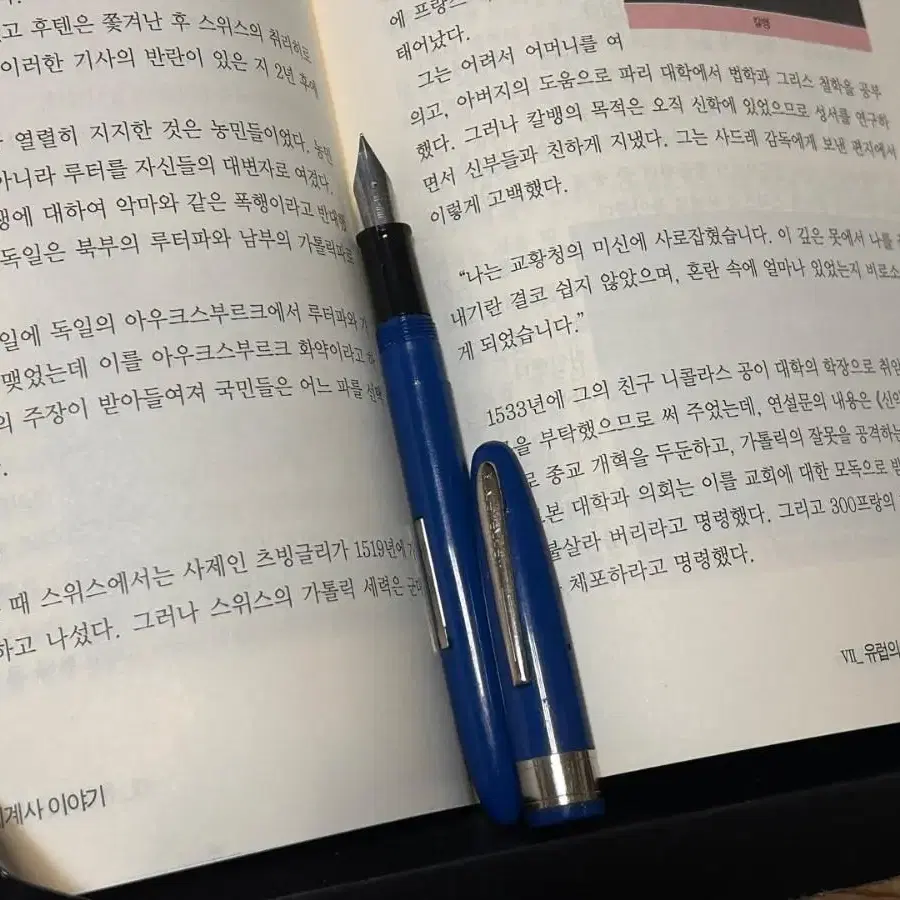 고 후텐은 쫓겨난 후 스위스의 취리히로
이러한 기사의 반란이 있은 지 2년 후에
열렬히 지지한 것은 농민들이었다. 농민
아니라 루터를 자신들의 대변자로 여겼다.
쟁에 대하여 악마와 같은 폭행이라고 반대했
독일은 북부의 루터파와 남부의 가톨릭파로
일에 독일의 아우크스부르크에서 루터파와 가
맺었는데 이를 아우크스부르크 화약이라고 하
의 주장이 받아들여져 국민들은 어느 파를 선택
때 스위스에서는 사제인 츠빙글리가 1519년에
하고 나섰다. 그러나 스위스의 가톨릭 세력은 군대
계사 이야기
에 프랑스
태어났다.
칼뱅
그는 어려서 어머니를 여
의고, 아버지의 도움으로 파리 대학에서 법학과 그리스 철학을 공부
했다. 그러나 칼뱅의 목적은 오직 신학에 있었으므로 성서를 연구하
면서 신부들과 친하게 지냈다. 그는 사드레 감독에게 보낸 편지에서
이렇게 고백했다.
“나는 교황청의 미신에 사로잡혔습니다. 이 깊은 못에서 나를
내기란 결코 쉽지 않았으며, 혼란 속에 얼마나 있었는지 비로소
게 되었습니다.”
1533년에 그의 친구 니콜라스 공이 대학의 학장으로 취임
을 부탁했으므로 써 주었는데, 연설문의 내용은 《신약
로 종교 개혁을 두둔하고, 가톨릭의 잘못을 공격하는
본 대학과 의회는 이를 교회에 대한 모독으로 받
불살라 버리라고 명령했다. 그리고 300프랑의
체포하라고 명령했다.
Ⅶ_ 유럽의